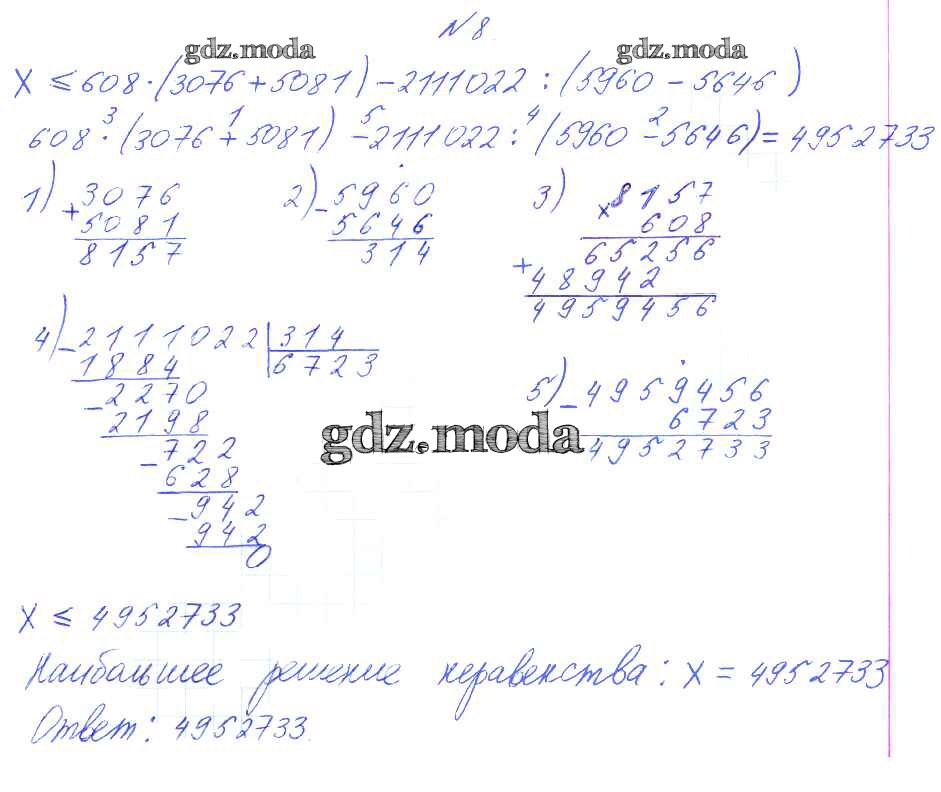 №8
gdz.moda gdz.moda
X ≤ 608·(3076+5081)−2111022:(5960−5646)
3 1 5 4 2
608·(3076+5081)−2111022:(5960−5646)=4952733
1) 3076
+ 5081
8157
2) − 5960
5646
314
3) × 8157
608
65256
+ 48942
4959456
4) − 2111022 | 314
1884 6723
− 2270
2198
− 722
628
− 942
942
0
5) − 4959456
6723
4952733
gdz.moda
X ≤ 4952733
Наибольшее решение неравенства: X = 4952733
Ответ: 4952733.